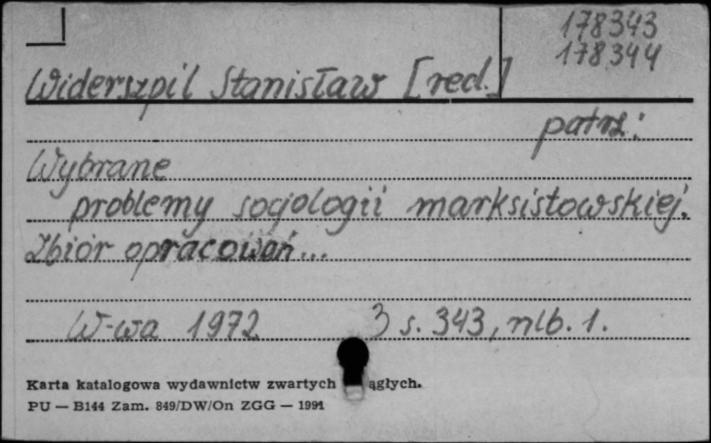 178343
178344
Widerszpil Stanisław [red.]
patrz:
Wybrane
problemy socjologii marksistowskiej.
Zbiór opracowań...
W-wa 1972 s. 343, nlb. 1.
Karta katalogowa wydawnictw zwartych
PU — B144 Zam. 849/DW/On ZGG — 1991